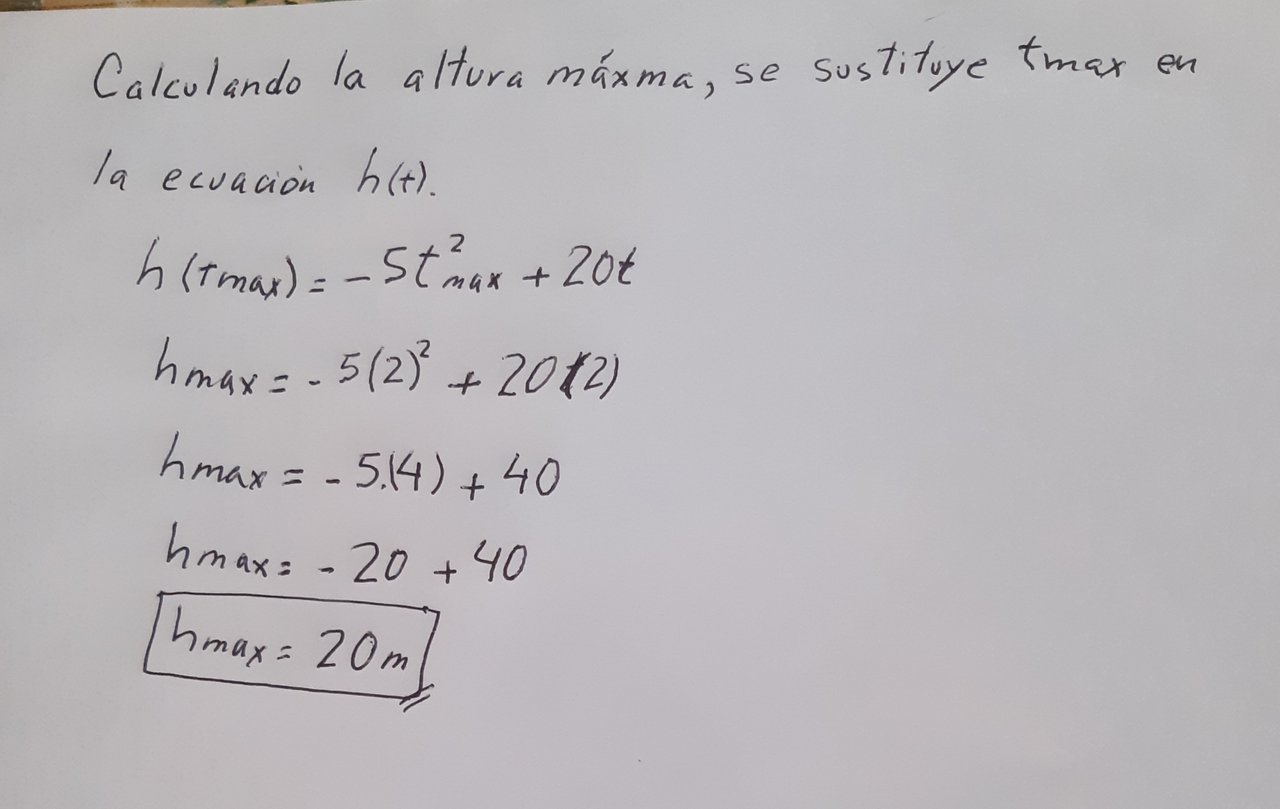 Calculando la altura máxma, se sustituye tmax en
la ecuación h(t).
h(tmax) = -5t²max + 20t
hmax = -5(2)² + 20(2)
hmax = -5.(4) + 40
hmax = -20 + 40
hmax = 20m